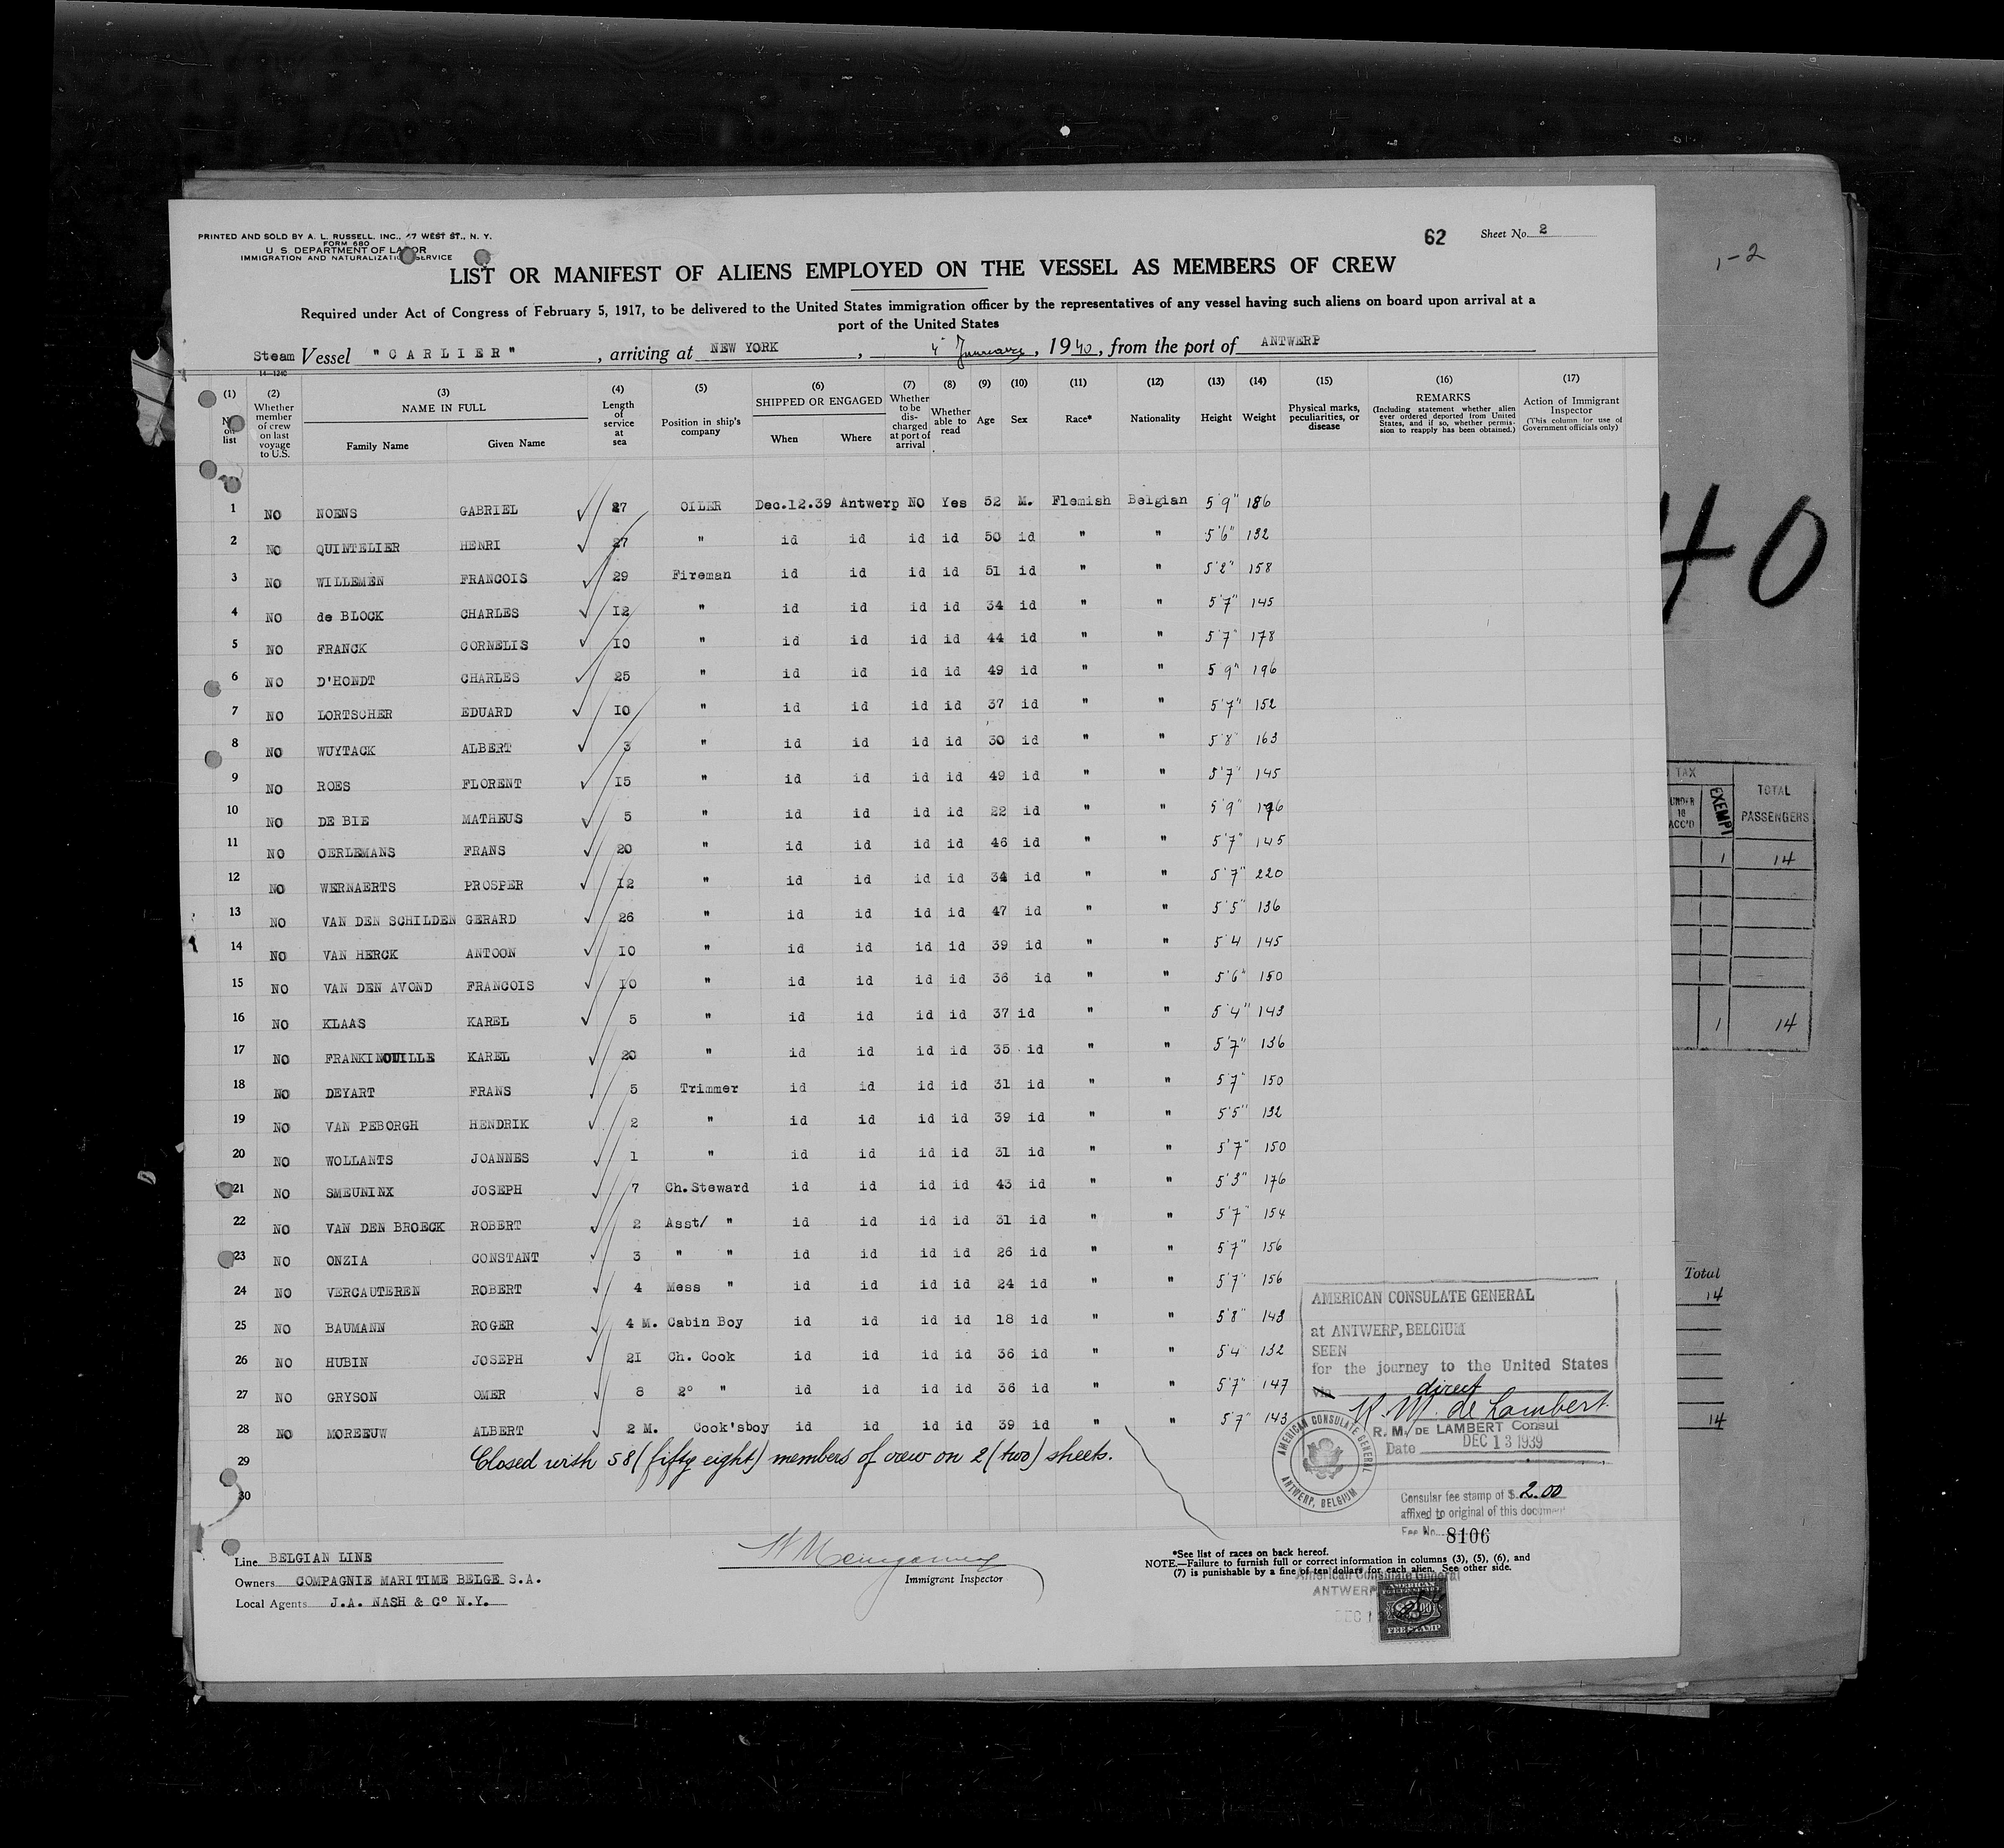 PRINTED AND SOLD BY A. L. RUSSELL. INC., 47 WEST ST., N. Y.
FORM 680
U. S. DEPARTMENT OF LABOR
IMMIGRATION AND NATURALIZATION SERVICE
62 Sheet No. 2
1-2
LIST OR MANIFEST OF ALIENS EMPLOYED ON THE VESSEL AS MEMBERS OF CREW
Required under Act of Congress of February 5, 1917, to be delivered to the United States immigration officer by the representatives of any vessel having such aliens on board upon arrival at a
port of the United States
Steam Vessel "CARLIER", arriving at NEW YORK, 4 January, 1940, from the port of ANTWERP
14-1240
(1) (2) (3) (4) (5) (6) (7) (8) (9) (10) (11) (12) (13) (14) (15) (16) (17)
No. on list
Whether member of crew on last voyage to U.S.
NAME IN FULL
Family Name Given Name
Length of service at sea
Position in ship's company
SHIPPED OR ENGAGED
When Where
Whether to be discharged at port of arrival
Whether able to read
Age Sex Race* Nationality Height Weight
Physical marks, peculiarities, or disease
REMARKS
(Including statement whether alien ever ordered deported from United States, and if so, whether permission to reapply has been obtained.)
Action of Immigrant Inspector
(This column for use of Government officials only)
1 NO NOENS GABRIEL 27 OILER Dec.12.39 Antwerp NO Yes 52 M. Flemish Belgian 5'9" 186
2 NO QUINTELIER HENRI 27 " id id id id 50 id " " 5'6" 132
3 NO WILLEMEN FRANCOIS 29 Fireman id id id id 51 id " " 5'2" 158
4 NO de BLOCK CHARLES I2 " id id id id 34 id " " 5'7" 145
5 NO FRANCK CORNELIS IO " id id id id 44 id " " 5'7" 178
6 NO D'HONDT CHARLES 25 " id id id id 49 id " " 5 9" 196
7 NO LORTSCHER EDUARD IO " id id id id 37 id " " 5'7" 152
8 NO WUYTACK ALBERT 3 " id id id id 30 id " " 5'8" 163
9 NO ROES FLORENT I5 " id id id id 49 id " " 5'7" 145
10 NO DE BIE MATHEUS 5 " id id id id 22 id " " 5'9" 176
11 NO OERLEMANS FRANS 20 " id id id id 46 id " " 5'7" 145
12 NO WERNAERTS PROSPER I2 " id id id id 34 id " " 5'7" 220
13 NO VAN DEN SCHILDEN GERARD 26 " id id id id 47 id " " 5'5" 136
14 NO VAN HERCK ANTOON IO " id id id id 39 id " " 5'4 145
15 NO VAN DEN AVOND FRANCOIS IO " id id id id 36 id " " 5'6" 150
16 NO KLAAS KAREL 5 " id id id id 37 id " " 5'4" 143
17 NO FRANKINOUILLE KAREL 20 " id id id id 35 id " " 5'7" 136
18 NO DEYART FRANS 5 Trimmer id id id id 31 id " " 5'7" 150
19 NO VAN PEBORGH HENDRIK 2 " id id id id 39 id " " 5'5" 132
20 NO WOLLANTS JOANNES 1 " id id id id 31 id " " 5'7" 150
21 NO SMEUNINX JOSEPH 7 Ch.Steward id id id id 43 id " " 5'3" 176
22 NO VAN DEN BROECK ROBERT 2 Asst/ " id id id id 31 id " " 5'7" 154
23 NO ONZIA CONSTANT 3 " " id id id id 26 id " " 5'7" 156
24 NO VERCAUTEREN ROBERT 4 Mess " id id id id 24 id " " 5'7" 156
25 NO BAUMANN ROGER 4 M. Cabin Boy id id id id 18 id " " 5'8" 143
26 NO HUBIN JOSEPH 2I Ch. Cook id id id id 36 id " " 5'4 132
27 NO GRYSON OMER 8 2° " id id id id 36 id " " 5'7" 147
28 NO MOREEUW ALBERT 2 M. Cook'sboy id id id id 39 id " " 5'7" 143
29 Closed with 58 (fifty eight) members of crew on 2 (two) sheets.
30
AMERICAN CONSULATE GENERAL
at ANTWERP, BELGIUM
SEEN
for the journey to the United States
via direct
R. M. de Lambert
R. M. DE LAMBERT Consul
Date DEC 13 1939
AMERICAN CONSULATE GENERAL
ANTWERP, BELGIUM
Consular fee stamp of $ 2.00
affixed to original of this document
Fee No. 8106
Line BELGIAN LINE
Owners COMPAGNIE MARITIME BELGE S.A.
Local Agents J.A. NASH & C° N.Y.
Immigrant Inspector
*See list of races on back hereof.
NOTE.—Failure to furnish full or correct information in columns (3), (5), (6), and
(7) is punishable by a fine of ten dollars for each alien. See other side.
American Consulate General
ANTWERP
DEC 1
AMERICAN
FEE STAMP
40
TAX
UNDER 18 ACC'D
EXEMPT
TOTAL PASSENGERS
1 14
1 14
Total
14
14